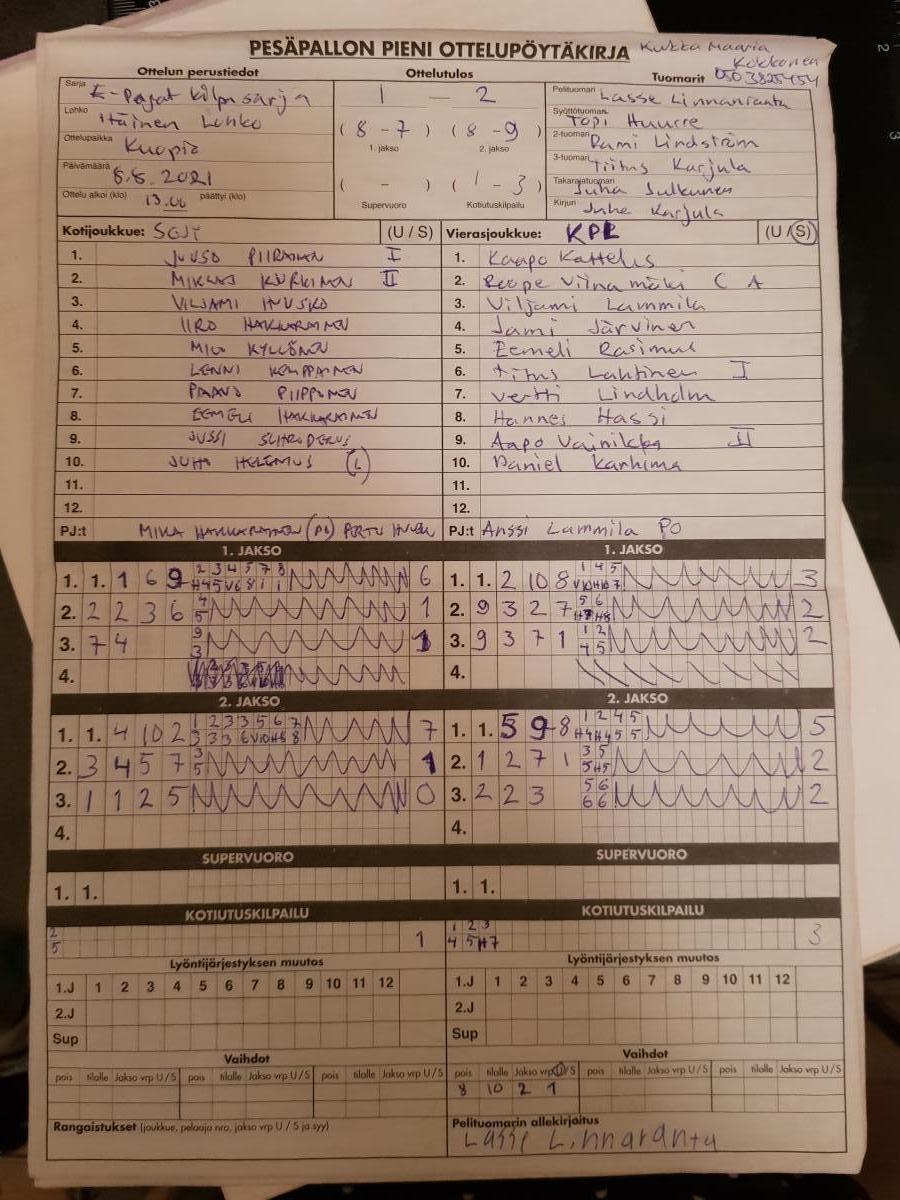 PESÄPALLON PIENI OTTELUPÖYTÄKIRJA
Kukka Maaria
Kokkonen
Ottelun perustiedot
Ottelutulos
Tuomarit 050 3825454
Sarja E-Pojat kilpasarja
Lohko Itäinen Lohko
Ottelupaikka Kuopio
Päivämäärä 8.8.2021
Ottelu alkoi (klo) 13.00 päättyi (klo)
1 — 2
( 8 - 7 ) ( 8 - 9 )
1. jakso 2. jakso
( - ) ( 1 - 3 )
Supervuoro Kotiutuskilpailu
Pelituomari Lasse Linnaranta
Syöttötuomari Topi Huurre
2-tuomari Rami Lindström
3-tuomari Tiitus Karjula
Takarajatuomari Juha Julkunen
Kirjuri Juha Karjula
Kotijoukkue: SOJY (U / S)
1. JUUSO PIIRAINEN I
2. MIKLAS KURKINEN II
3. VILJAMI INUSKO
4. IIRO HAKKARAINEN
5. MIIO KYLLÖNEN
6. LENNI KEMPPAINEN
7. PAAVO PIIPPONEN
8. EEMELI HAKKARAINEN
9. JUSSI SCHRODERUS
10. JUHO HELENIUS (L)
11.
12.
PJ:t MIKA HAKKARAINEN (PJ) PERTU
Vierasjoukkue: KPL (U / S)
1. Kaapo Kattelus
2. Roope Viinamäki C A
3. Viljami Lammila
4. Jami Järvinen
5. Eemeli Rasimus
6. Titus Lahtinen I
7. Vertti Lindholm
8. Hannes Hassi
9. Aapo Vainikka II
10. Daniel Karhima
11.
12.
PJ:t Anssi Lammila PO
1. JAKSO
1. 1. 1 6 9 2 3 4 5 7 8 6
H4 5 V6 8 1 1
2. 2 2 3 6 4 1
5
3. 7 4 9 1
3
4.
1. JAKSO
1. 1. 2 10 8 1 4 5 3
V10 H10 7
2. 9 3 2 7 5 6 2
H7 H8
3. 9 3 7 1 1 2 2
4 5
4.
2. JAKSO
1. 1. 4 10 2 1 2 3 3 5 6 7 7
3 3 3 6 V10 H8 8
2. 3 4 5 7 3 1
5
3. 1 1 2 5 0
4.
2. JAKSO
1. 1. 5 9 8 1 2 4 5 5
H4 H4 5 5
2. 1 2 7 1 3 5 2
5 H5
3. 2 2 3 5 6 2
6 6
4.
SUPERVUORO
1. 1.
SUPERVUORO
1. 1.
KOTIUTUSKILPAILU
2
5 1
KOTIUTUSKILPAILU
1 2 3
4 5 H7 3
Lyöntijärjestyksen muutos
1.J 1 2 3 4 5 6 7 8 9 10 11 12
2.J
Sup
Lyöntijärjestyksen muutos
1.J 1 2 3 4 5 6 7 8 9 10 11 12
2.J
Sup
Vaihdot
pois tilalle Jakso vrp U / S pois tilalle Jakso vrp U / S pois tilalle Jakso vrp U / S
Vaihdot
pois tilalle Jakso vrp U / S pois tilalle Jakso vrp U / S pois tilalle Jakso vrp U / S
8 10 2 1
Rangaistukset (joukkue, pelaaja nro, jakso vrp U / S ja syy)
Pelituomarin allekirjoitus
Lasse Linnaranta